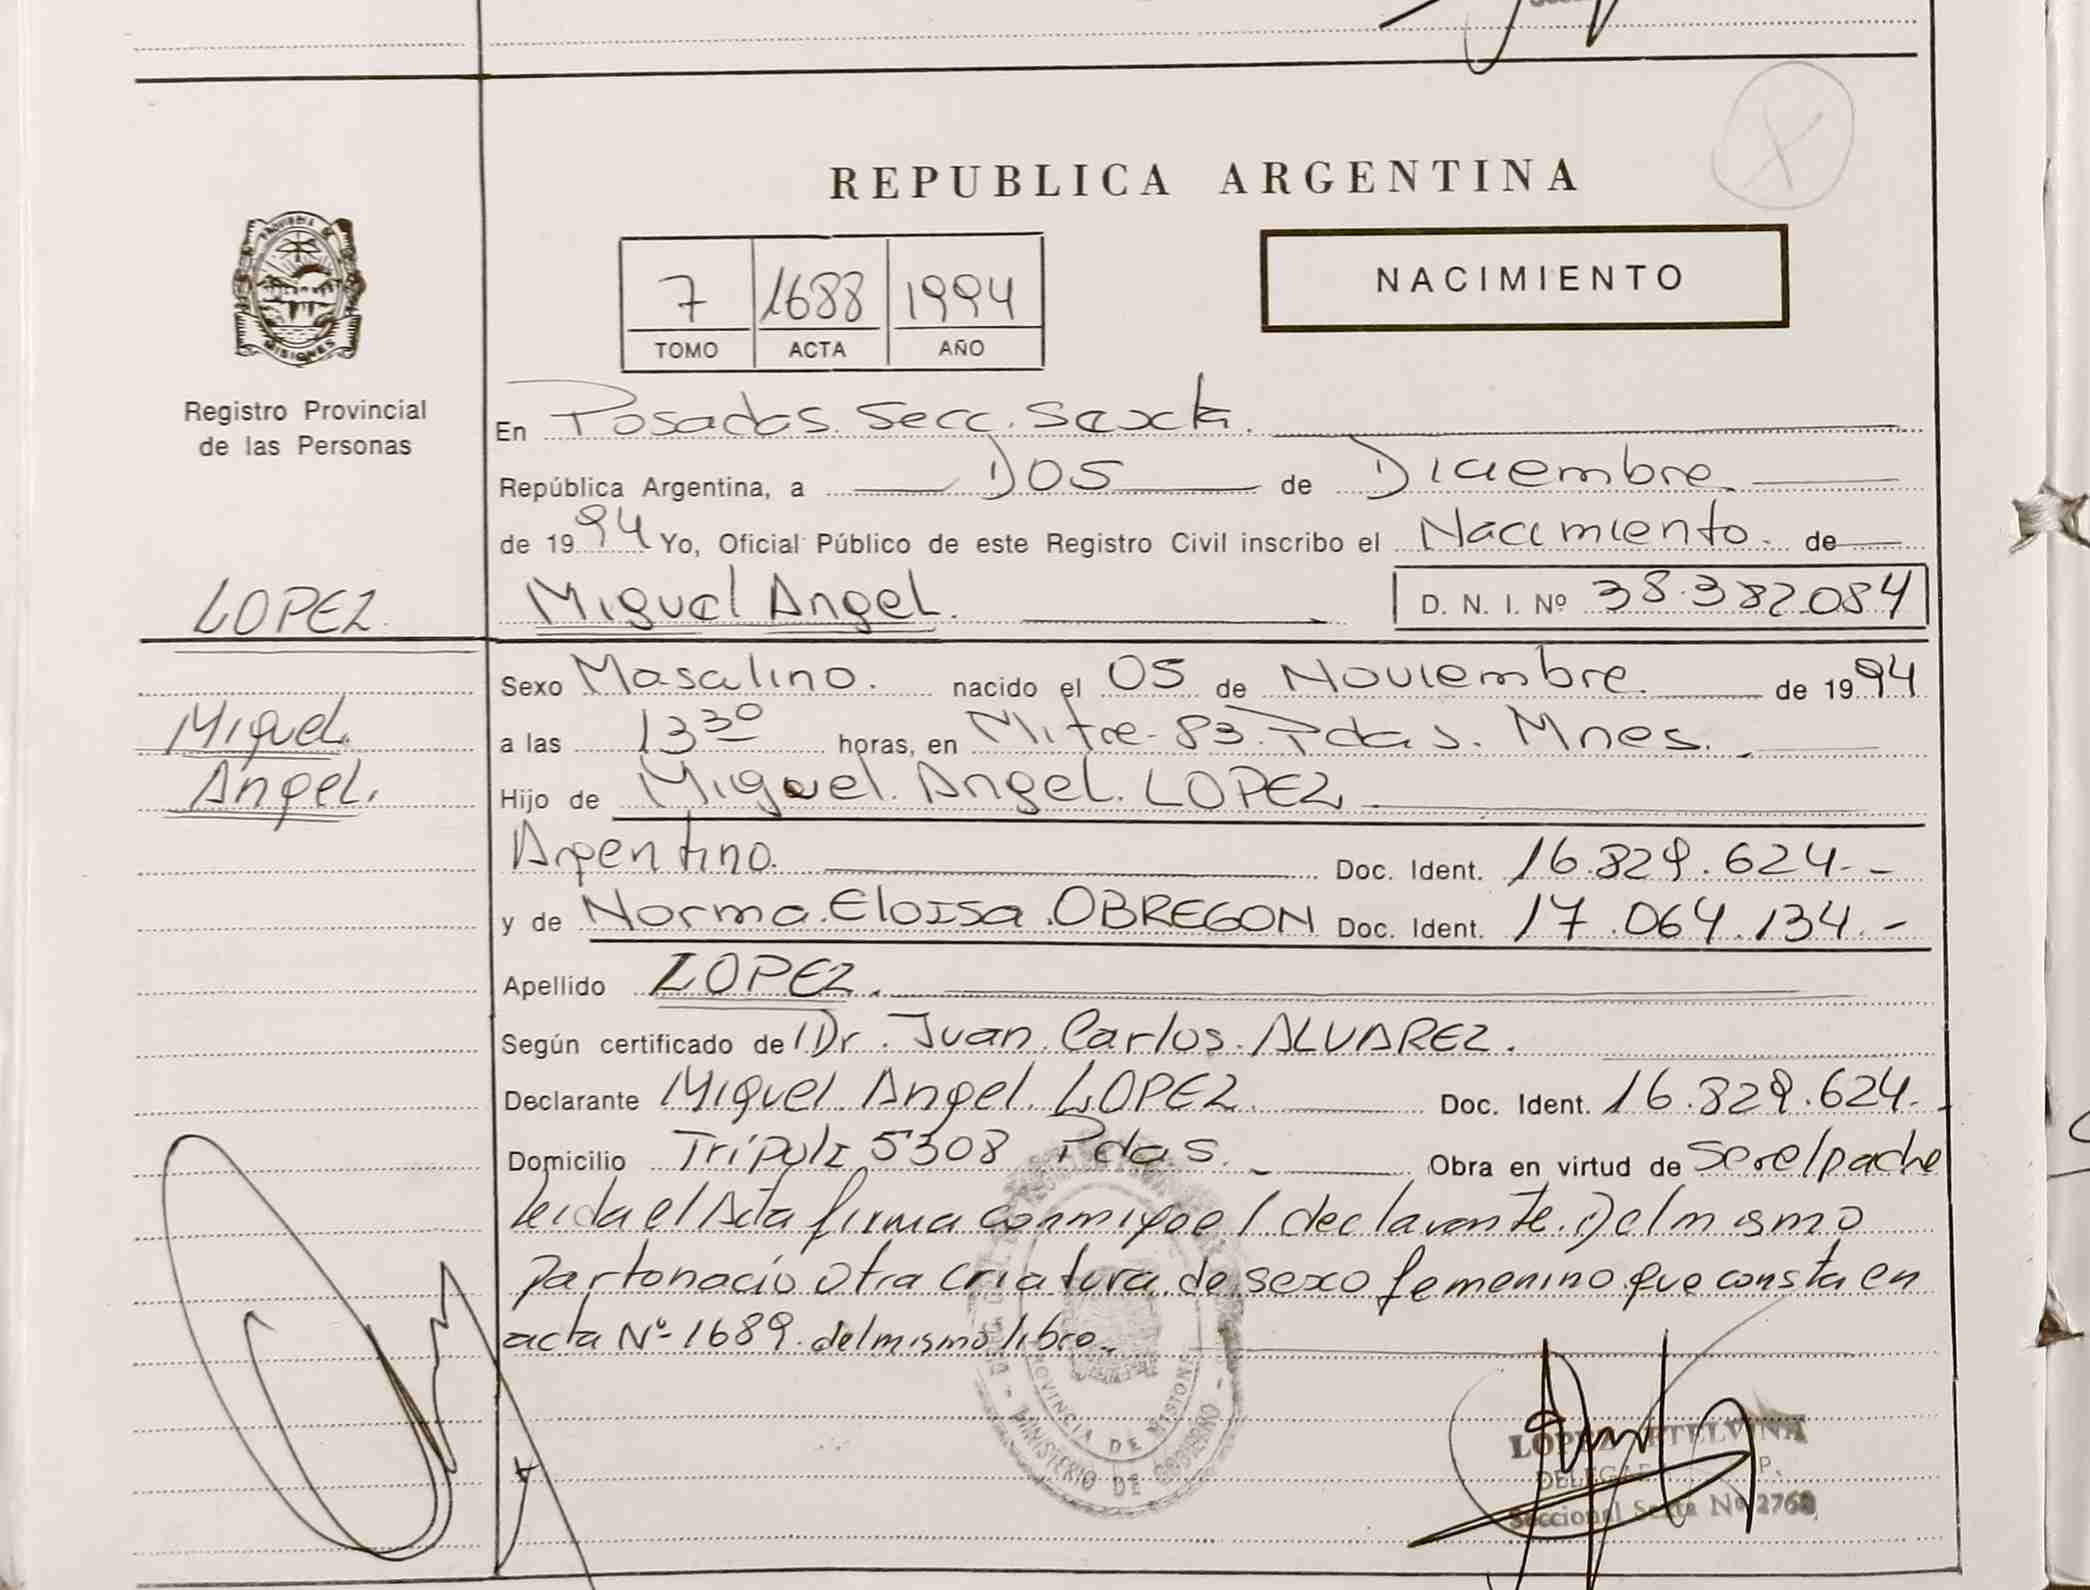 REPUBLICA ARGENTINA
PROVINCIA DE
MISIONES
7 1688 1994
TOMO ACTA AÑO
NACIMIENTO
Registro Provincial
de las Personas
En Posadas. Secc. Sexta.
República Argentina, a Dos de Diciembre
de 1994 Yo, Oficial Público de este Registro Civil inscribo el Nacimiento. de
LOPEZ Miguel Angel. D. N. I. Nº 38.382.084
Sexo Masculino. nacido el 05 de Noviembre. de 1994
Miguel. a las 13 30 horas, en Mitre 83. Pdas. Mnes.
Angel. Hijo de Miguel. Angel. LOPEZ
Argentino. Doc. Ident. 16.829.624.-
y de Norma. Eloisa. OBREGON Doc. Ident. 17.064.134.-
Apellido LOPEZ.
Según certificado de Dr. Juan Carlos. ALVAREZ.
Declarante Miguel Angel. LOPEZ Doc. Ident. 16.829.624.
Domicilio Tripoli 5308 Pdas. Obra en virtud de ser el padre
leida el Acta firma conmigo el declarante. Del mismo
parto nacio otra criatura de sexo femenino que consta en
acta Nº 1689 del mismo libro.
PROVINCIA DE MISIONES
MINISTERIO DE GOBIERNO
LOPEZ
Seccional Sexta Nº 2768